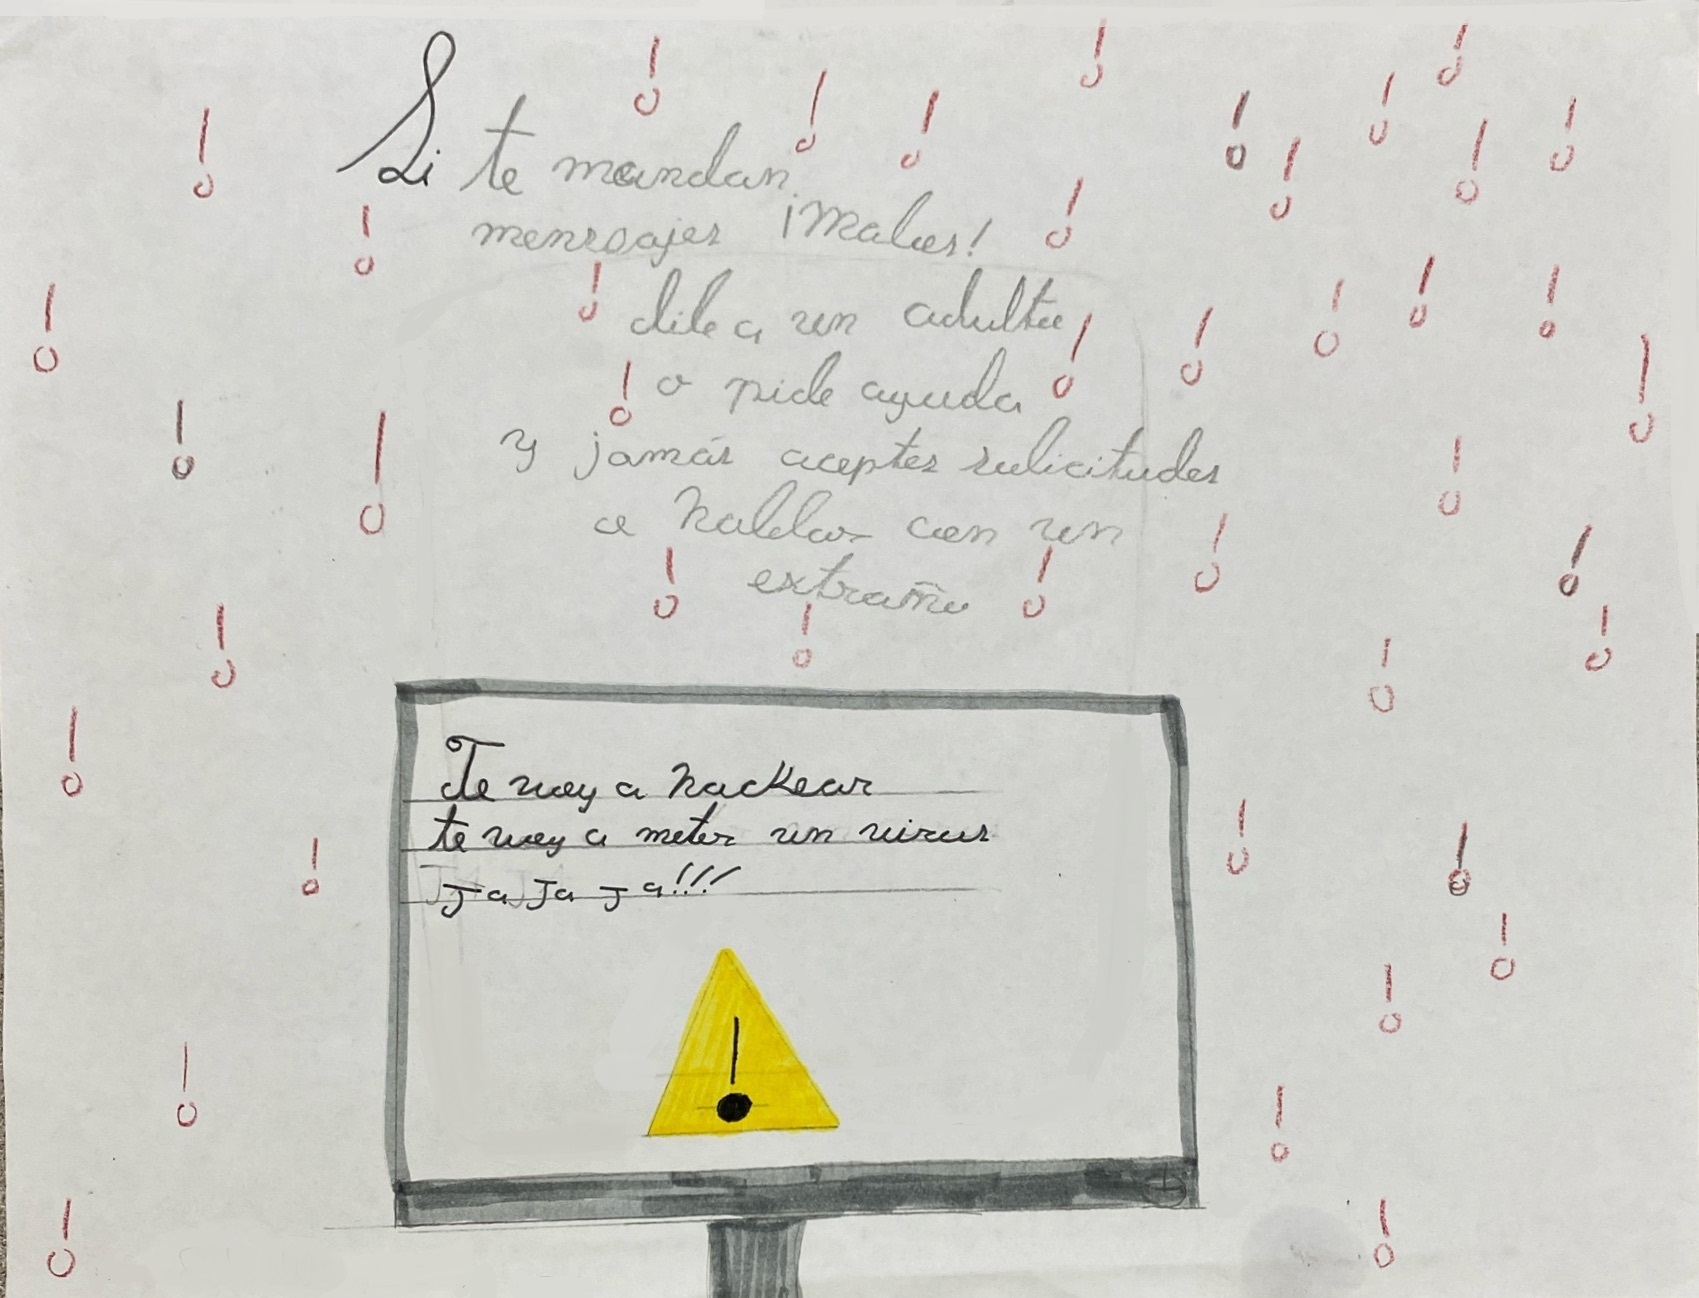 Si te mandan
mensajes ¡Malos!
dile a un adulto
o pide ayuda
y jamás aceptes solicitudes
o hablar con un
extraño
Te voy a hackear
te voy a meter un virus
Ja Ja Ja!!!
!